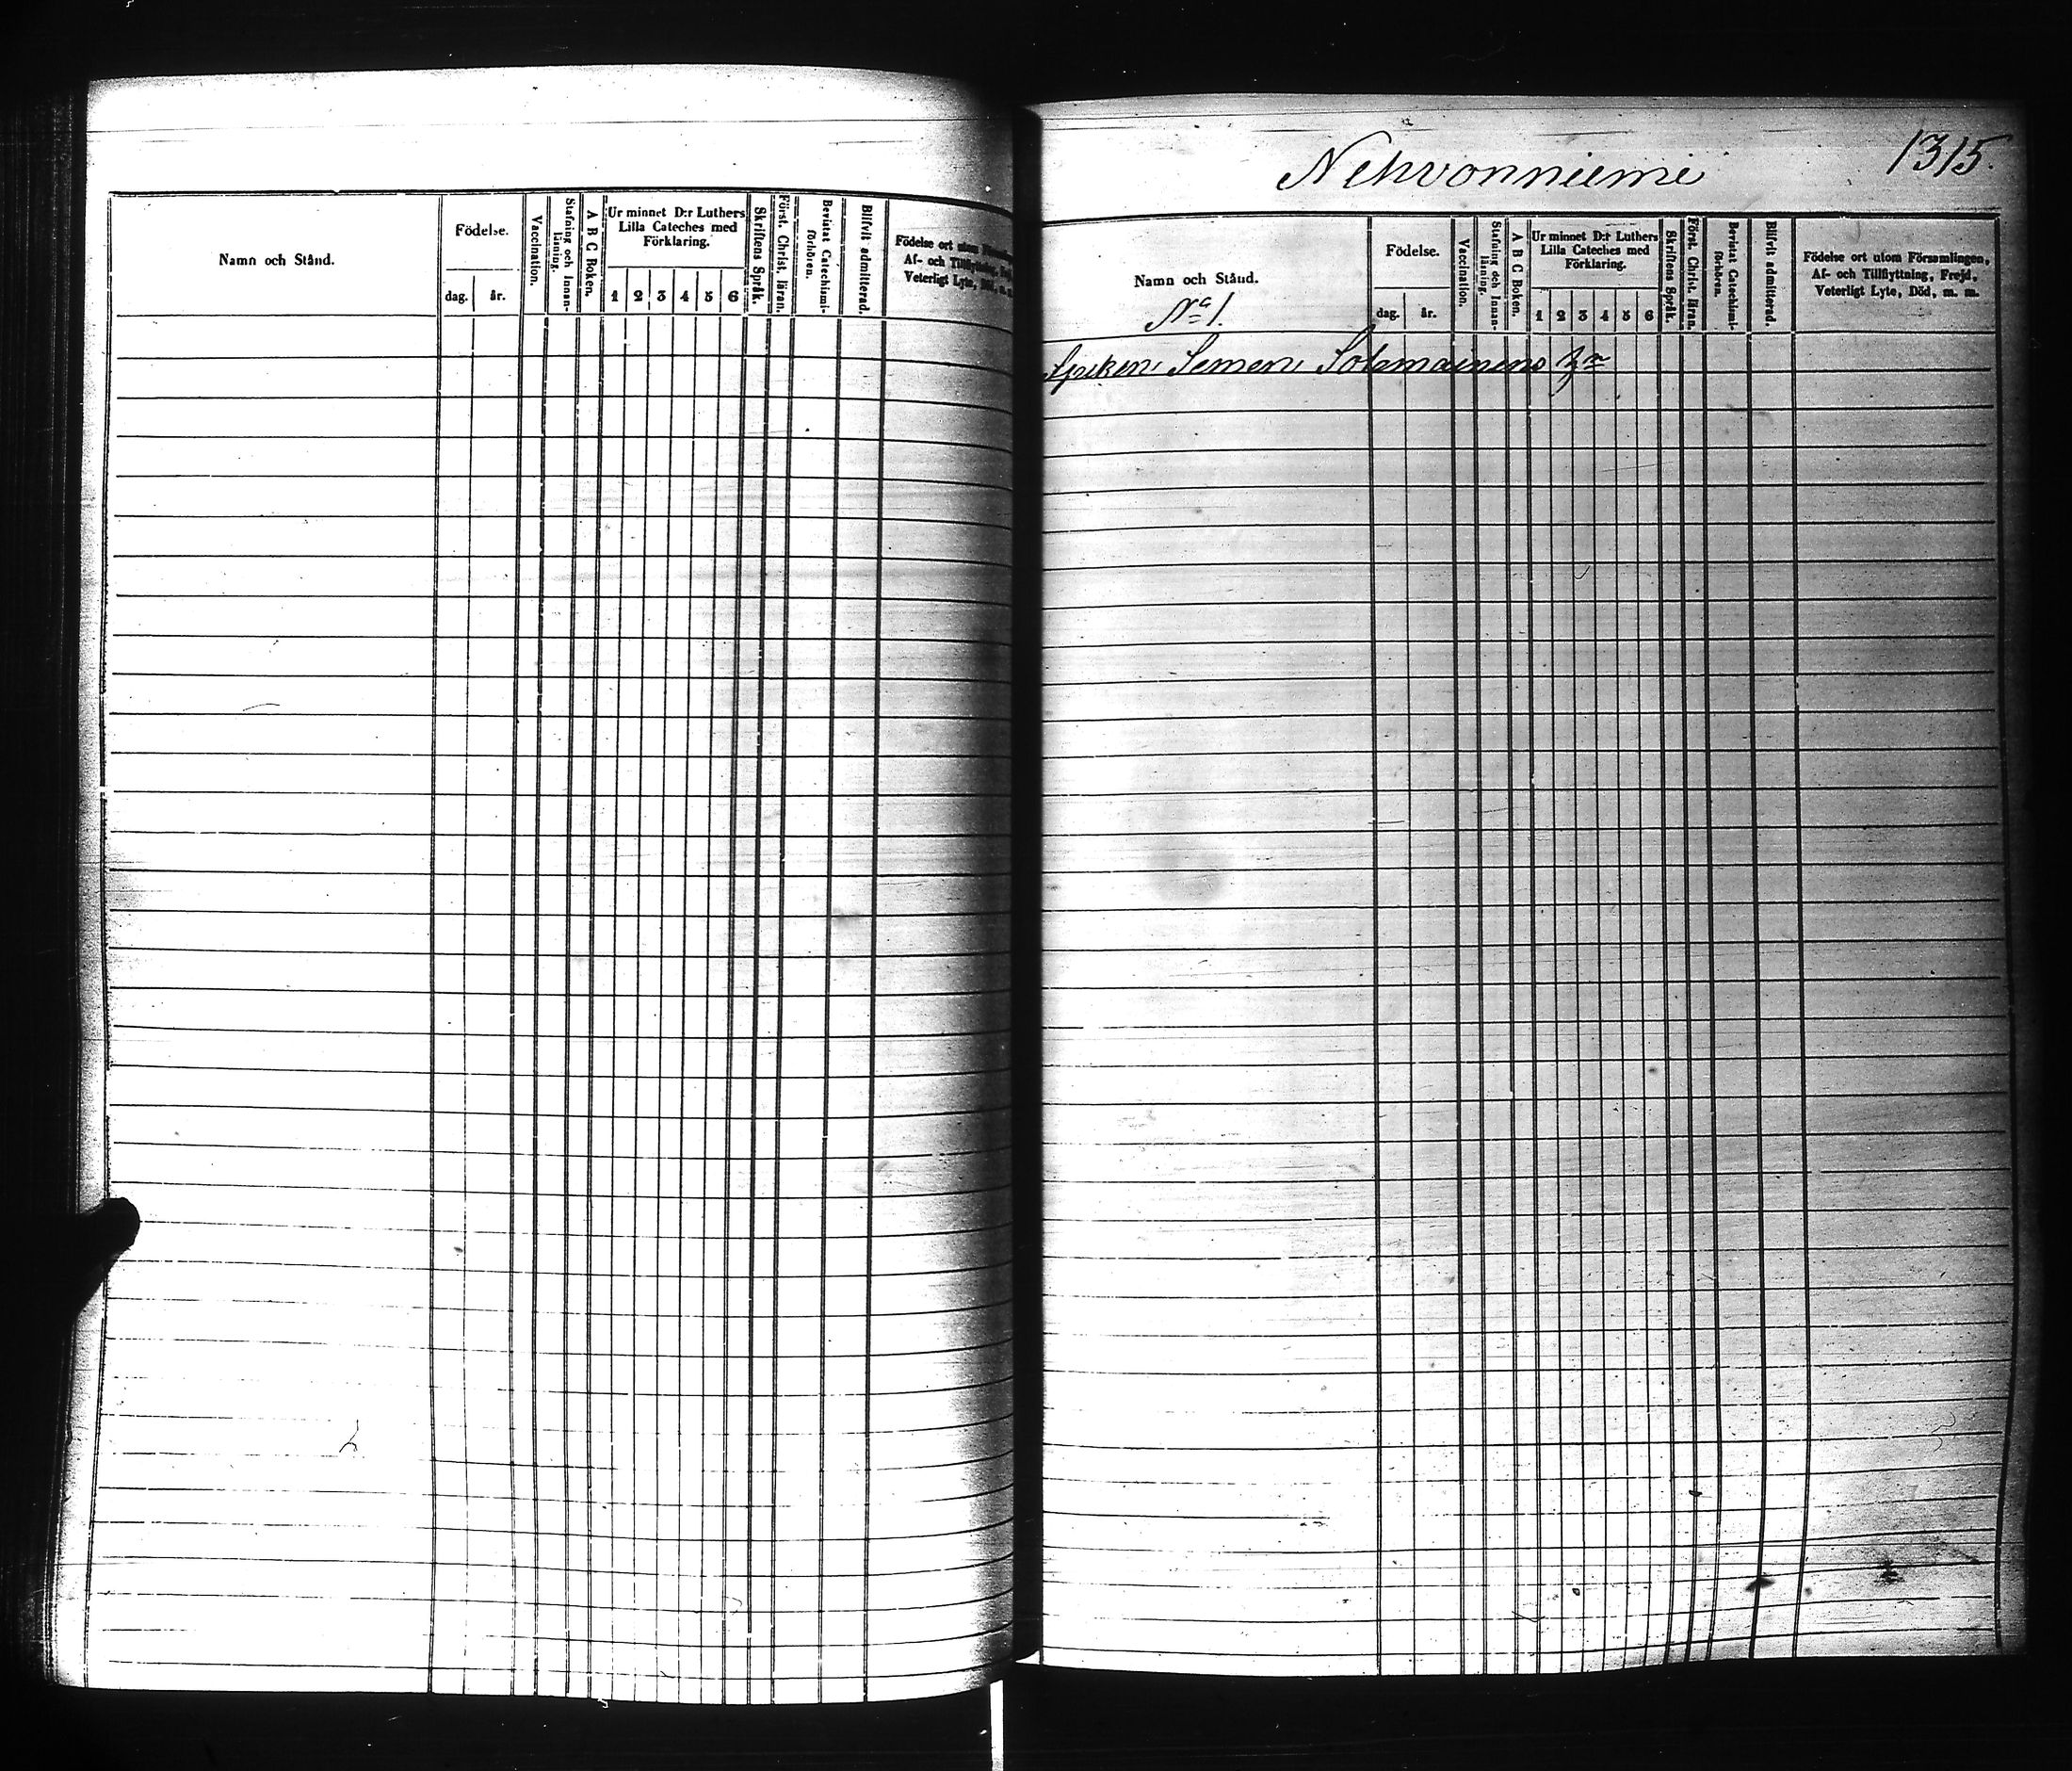 Namn och Stånd.
Födelse.
dag.
år.
Vaccination.
Stafning och Innan-
läsning.
A B C Boken.
Ur minnet D:r Luthers
Lilla Cateches med
Förklaring.
1 2 3 4 5 6
Skriftens Språk.
Först. Christ. läran.
Bevistat Catechismi-
förhören.
Blifvit admitterad.
Födelse ort utom
Af- och Tillflyttning,
Veterligt Lyte, Död, m. m.
Nehvonniemi
1315.
Namn och Stånd.
No 1.
Födelse.
dag.
år.
Vaccination.
Stafning och Innan-
läsning.
A B C Boken.
Ur minnet D:r Luthers
Lilla Cateches med
Förklaring.
1 2 3 4 5 6
Skriftens Språk.
Först. Christ. läran.
Bevistat Catechismi-
förhören.
Blifvit admitterad.
Födelse ort utom Församlingen,
Af- och Tillflyttning, Frejd,
Veterligt Lyte, Död, m. m.
Semen Solemainens